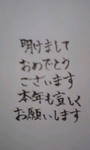 明けまして
おめでとう
ございます
本年も宜しく
お願いします